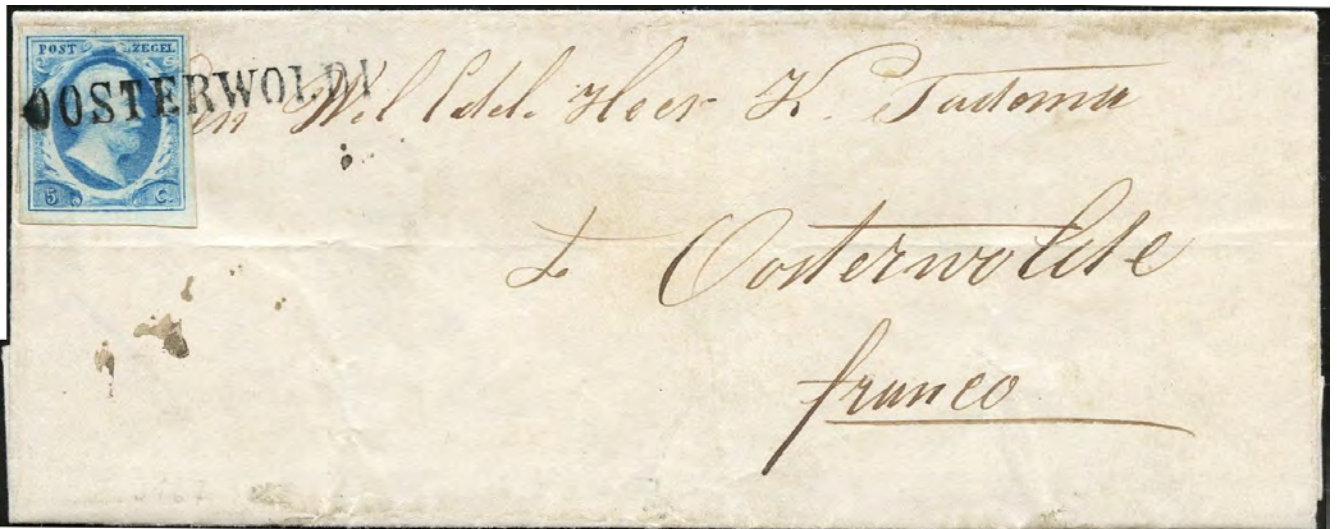 POST ZEGEL
OOSTERWOLDE
Den Wel Edel. Heer K. Tadema
5 C.
te Oosterwolde
franco